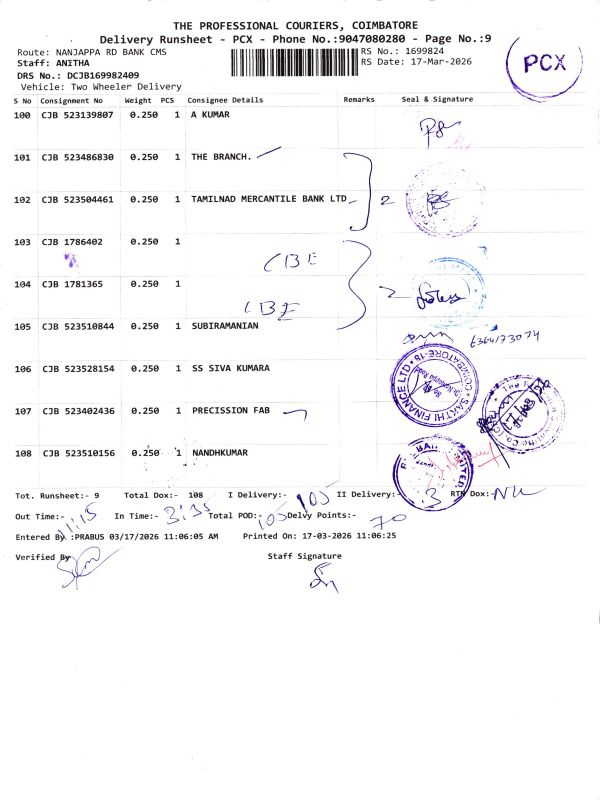 THE PROFESSIONAL COURIERS, COIMBATORE
Delivery Runsheet - PCX - Phone No.:9047080280 - Page No.:9
Route: NANJAPPA RD BANK CMS
RS No.: 1699824
Staff: ANITHA
RS Date: 17-Mar-2026
PCX
DRS No.: DCJB169982409
Vehicle: Two Wheeler Delivery
S No Consignment No Weight PCS Consignee Details Remarks Seal & Signature
100 CJB 523139807 0.250 1 A KUMAR
101 CJB 523486830 0.250 1 THE BRANCH.
102 CJB 523504461 0.250 1 TAMILNAD MERCANTILE BANK LTD 2
103 CJB 1786402 0.250 1
CBE
104 CJB 1781365 0.250 1 2
CBE
105 CJB 523510844 0.250 1 SUBIRAMANIAN
106 CJB 523528154 0.250 1 SS SIVA KUMARA
SAKTHI FINANCE LTD COIMBATORE-18
107 CJB 523402436 0.250 1 PRECISSION FAB
108 CJB 523510156 0.250 1 NANDHKUMAR
Tot. Runsheet:- 9 Total Dox:- 108 I Delivery:- 105 II Delivery:- 3 RTN Dox:- NIL
Out Time:- 11:15 In Time:- 3:35 Total POD:- 105 Delvy Points:- 70
Entered By :PRABUS 03/17/2026 11:06:05 AM Printed On: 17-03-2026 11:06:25
Verified By
Staff Signature